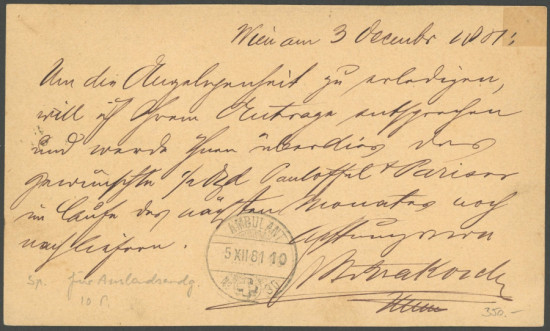 Wien am 3 Decembr 1881.
Um die Angelegenheit zu erledigen,
will ich Ihrem Antrage entsprechen
und werde Ihnen überdies das
gewünschte 1/2 Dzd Pantoffel & Pariser
im Laufe des nächsten Monates noch
nachliefern. Achtungsvoll
AMBULANT
5 XII 81 10
Nº 30
Sp. für Auslandsendg.
10 r.
Wien
350.-